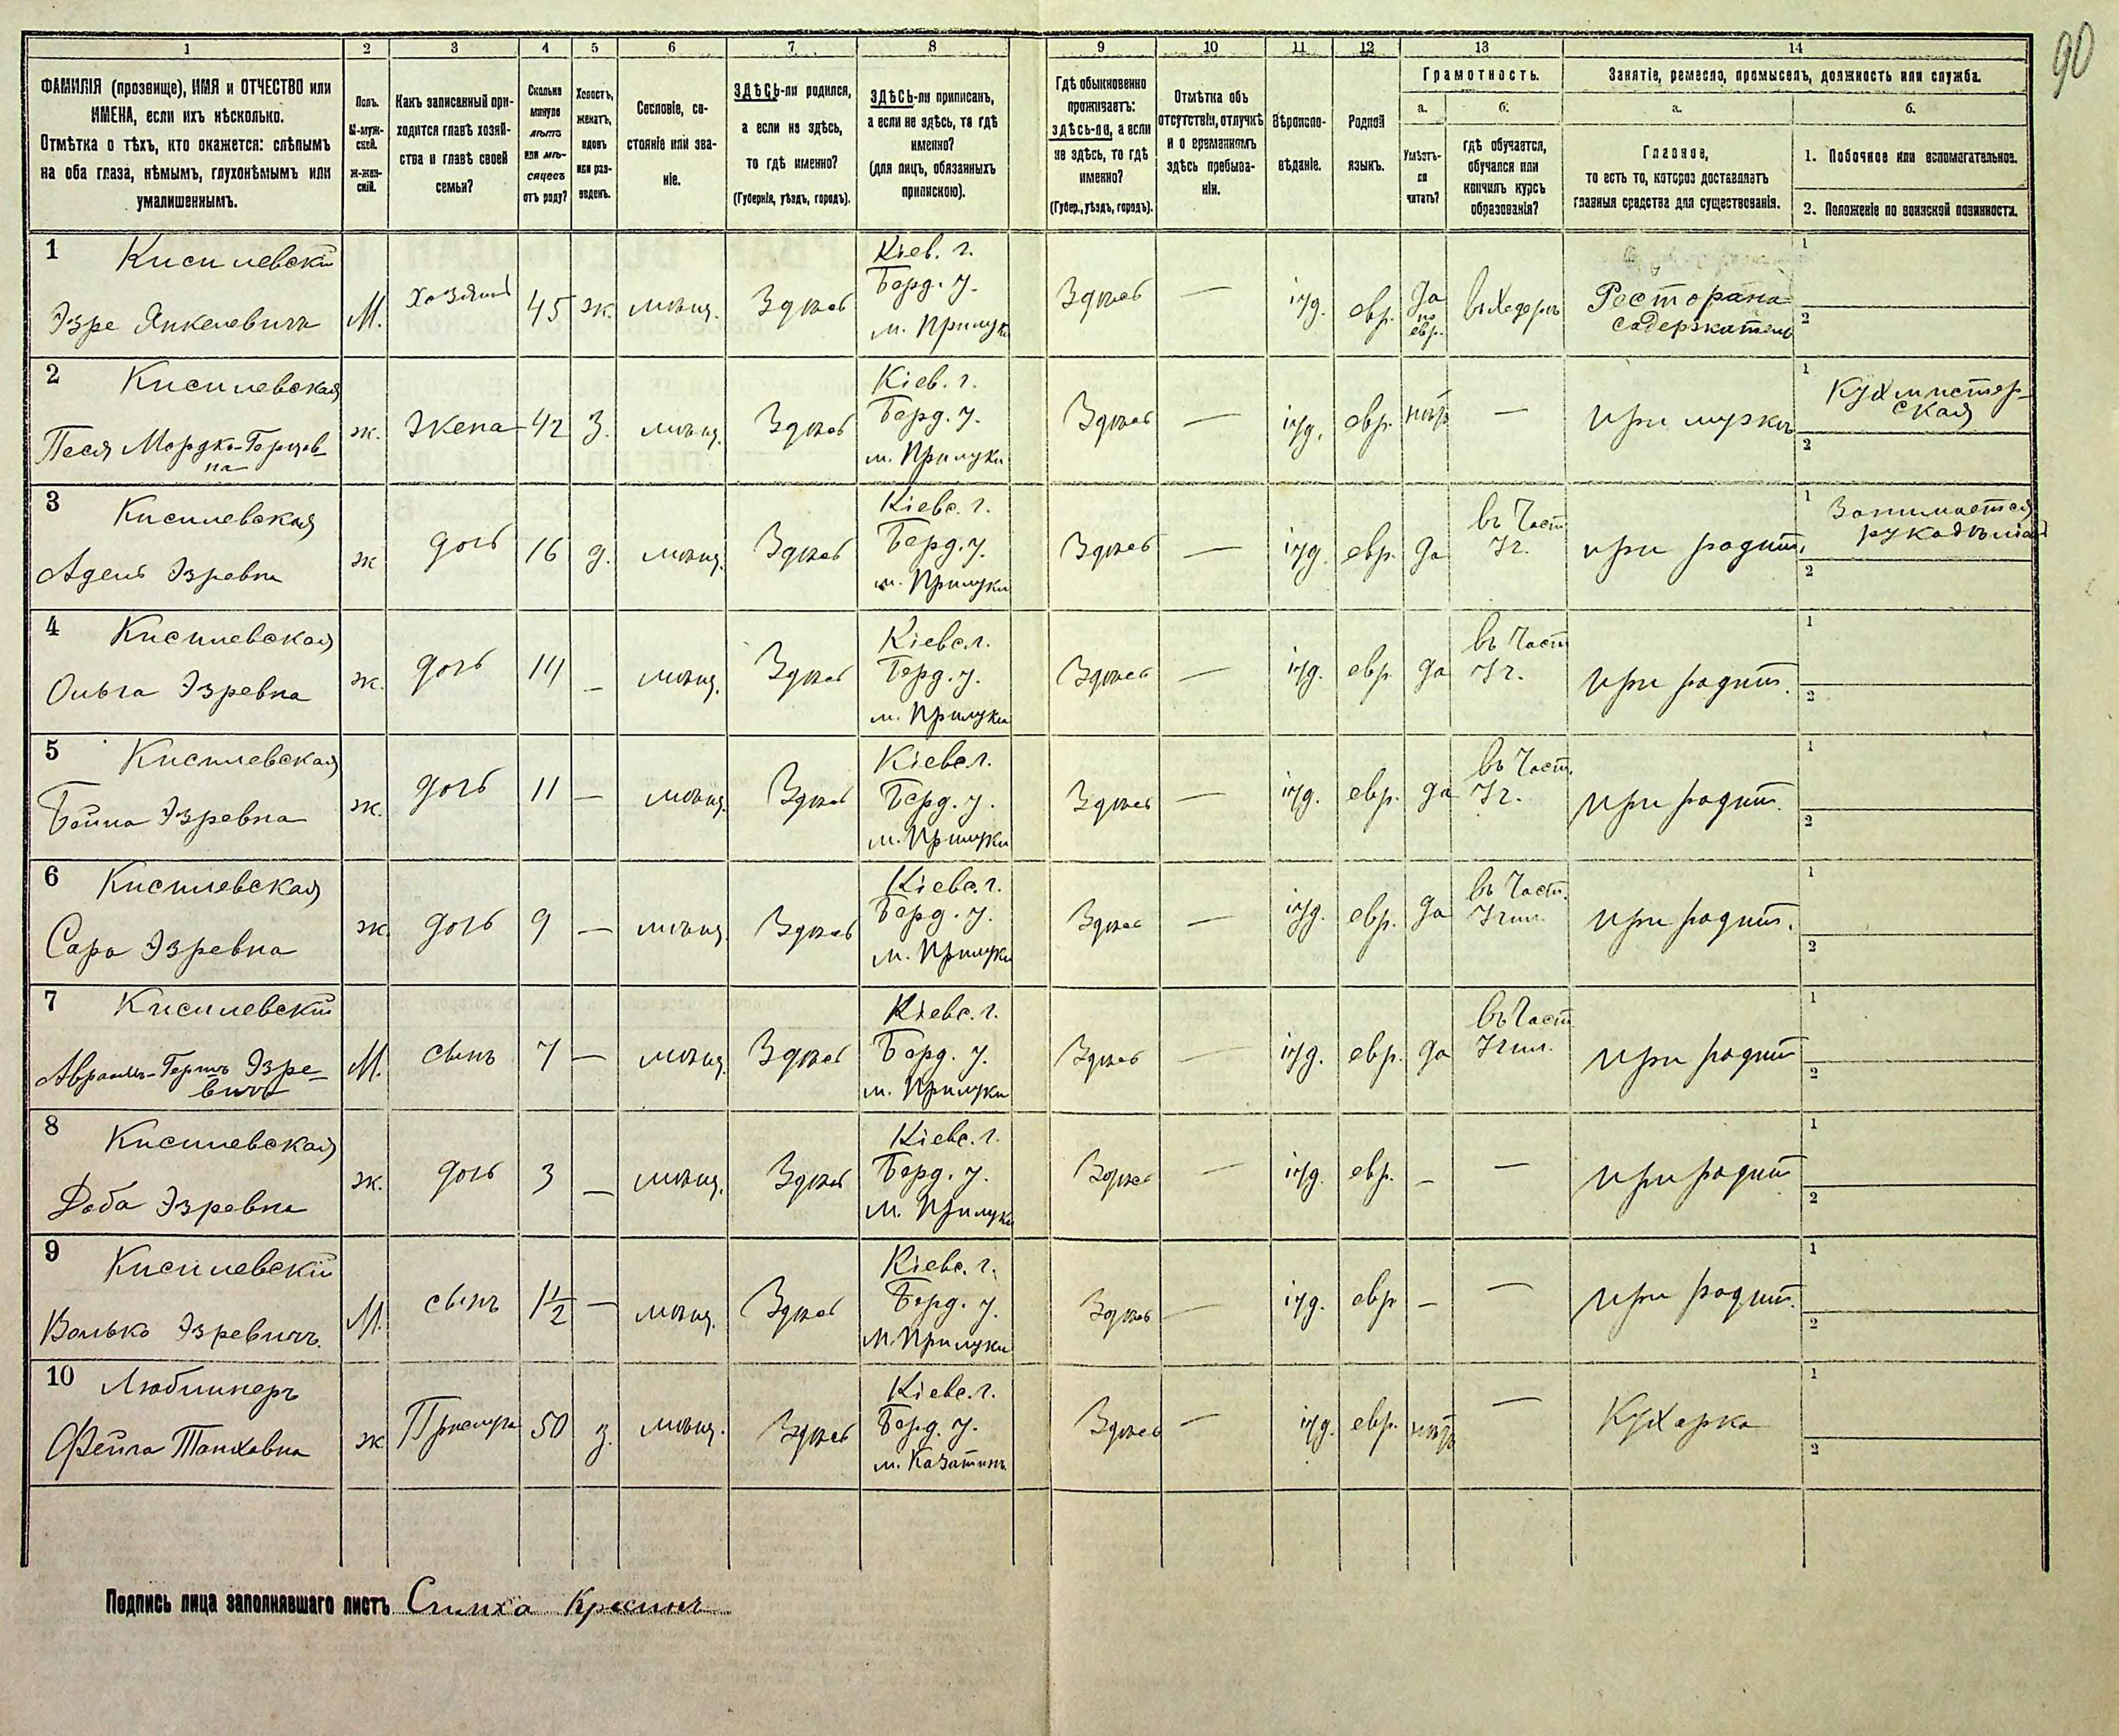 90
1 2 3 4 5 6 7 8 9 10 11 12 13 14
ФАМИЛІЯ (прозвище), ИМЯ и ОТЧЕСТВО или
ИМЕНА, если ихъ нѣсколько.
Отмѣтка о тѣхъ, кто окажется: слѣпымъ
на оба глаза, нѣмымъ, глухонѣмымъ или
умалишеннымъ.
Полъ.
М-муж-
ской.
Ж-жен-
скій.
Какъ записанный при-
ходится главѣ хозяй-
ства и главѣ своей
семьи?
Сколько
минуло
лѣтъ
или мѣ-
сяцевъ
отъ роду?
Холостъ,
женатъ,
вдовъ
или раз-
веденъ.
Сословіе, со-
стояніе или зва-
ніе.
ЗДѢСЬ-ли родился,
а если не здѣсь,
то гдѣ именно?
(Губернія, уѣздъ, городъ).
ЗДѢСЬ-ли приписанъ,
а если не здѣсь, то гдѣ
именно?
(для лицъ, обязанныхъ
припискою).
Гдѣ обыкновенно
проживаетъ:
здѣсь-ли, а если
не здѣсь, то гдѣ
именно?
(Губер., уѣздъ, городъ).
Отмѣтка объ
отсутствіи, отлучкѣ
и о временномъ
здѣсь пребыва-
ніи.
Вѣроиспо-
вѣданіе.
Родной
языкъ.
Грамотность.
а.
Умѣетъ-
ли
читать?
б.
гдѣ обучается,
обучался или
кончилъ курсъ
образованія?
Занятіе, ремесло, промыселъ, должность или служба.
а.
Главное,
то есть то, которое доставляетъ
главныя средства для существованія.
б.
1. Побочное или вспомогательное.
2. Положеніе по воинской повинности.
1 Кисилевскій
Эзре Янкелевичъ
М.
хозяинъ
45
ж.
мѣщ.
Здѣсь
Кіев. г.
Берд. у.
м. Прилуки
Здѣсь
—
іуд.
евр.
да
по
евр.
въ Хедерѣ
Ресторана
содержатель
1
2
2 Кисилевская
Песя Мордко-Герцов-
на
ж.
Жена
42
З.
мѣщ.
Здѣсь
Кіев. г.
Берд. у.
м. Прилуки
Здѣсь
—
іуд.
евр.
нѣтъ
—
при мужѣ
1 Кухмистер-
ская
2
3 Кисилевская
Адель Эзревна
ж
дочь
16
д.
мѣщ.
Здѣсь
Кіевс. г.
Берд. у.
м. Прилуки
Здѣсь
—
іуд.
евр.
да
въ Част.
Уч.
при родит.
1 Занимается
рукодѣліем
2
4 Кисилевская
Ольга Эзревна
ж.
дочь
14
—
мѣщ.
Здѣсь
Кіевс. г.
Берд. у.
м. Прилуки
Здѣсь
—
іуд.
евр.
да
въ Част
Уч.
при родит.
1
2
5 Кисилевская
Бейла Эзревна
ж.
дочь
11
—
мѣщ.
Здѣсь
Кіевс. г.
Берд. у.
м. Прилуки
Здѣсь
—
іуд.
евр.
да
въ Част.
Уч.
при родит.
1
2
6 Кисилевская
Сара Эзревна
ж.
дочь
9
—
мѣщ.
Здѣсь
Кіевс. г.
Берд. у.
м. Прилуки
Здѣсь
—
іуд.
евр.
да
въ Част.
Учил.
при родит.
1
2
7 Кисилевскій
Авраамъ-Гершъ Эзре-
вичъ
М.
сынъ
7
—
мѣщ.
Здѣсь
Кіевс. г.
Берд. у.
м. Прилуки
Здѣсь
—
іуд.
евр.
да
въ Част
Учил.
при родит
1
2
8 Кисилевская
Доба Эзревна
ж.
дочь
3
—
мѣщ.
Здѣсь
Кіевс. г.
Берд. у.
м. Прилуки
Здѣсь
—
іуд.
евр.
—
—
при родит
1
2
9 Кисилевскій
Волько Эзревичъ.
М.
сынъ
1½
—
мѣщ.
Здѣсь
Кіевс. г.
Берд. у.
м. Прилуки
Здѣсь
—
іуд.
евр
—
—
при родит.
1
2
10
Фейга Танховна
ж
50
З.
мѣщ.
Здѣсь
Кіевс. г.
Берд. у.
м. Казатинъ
Здѣсь
—
іуд.
евр.
нѣтъ
—
Кухарка
1
2
Подпись лица заполнявшаго листъ Симха